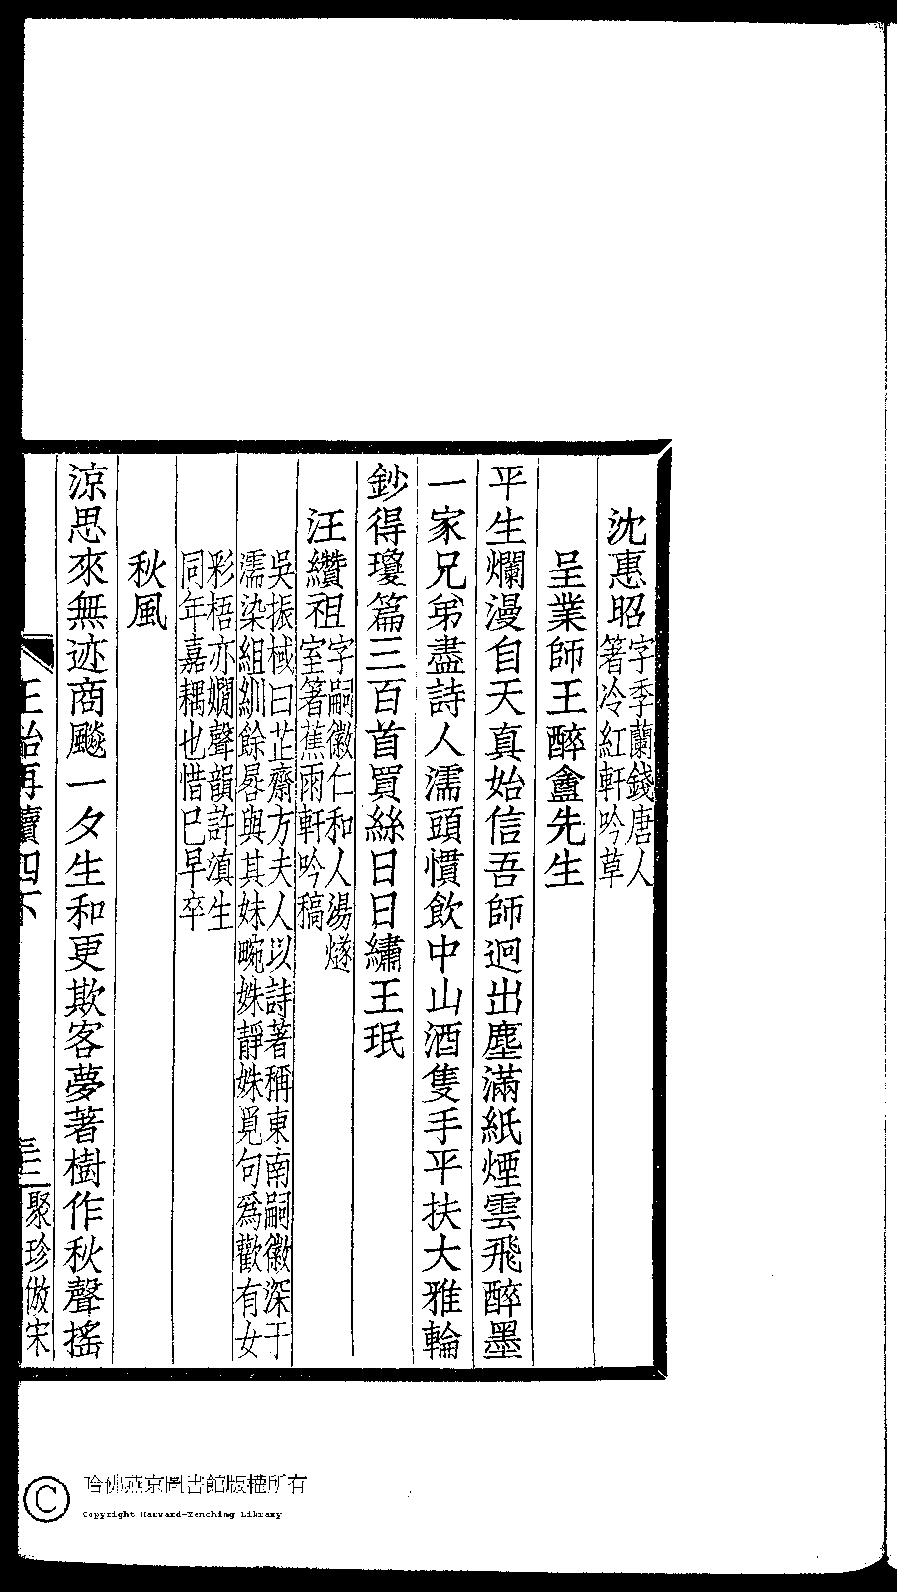 沈惠昭字季蘭錢唐人
箸冷紅軒吟草
呈業師王醉盦先生
平生爛漫自天真始信吾師迥出塵滿紙煙雲飛醉墨
一家兄弟盡詩人濡頭慣飲中山酒隻手平扶大雅輪
鈔得瓊篇三百首買絲日日繡王珉
汪纘祖字嗣徽仁和人湯燧
室箸蕉雨軒吟稿
吳振棫曰芷齋方夫人以詩著稱東南嗣徽深于
濡染組紃餘晷與其妹畹姝靜姝覓句爲歡有女
彩梧亦嫺聲韻許滇生
同年嘉耦也惜已早卒
秋風
涼思來無迹商飈一夕生和更欺客夢著樹作秋聲搖
聚珍倣宋
哈佛燕京圖書館版權所有
Copyright Harvard-Yenching Library